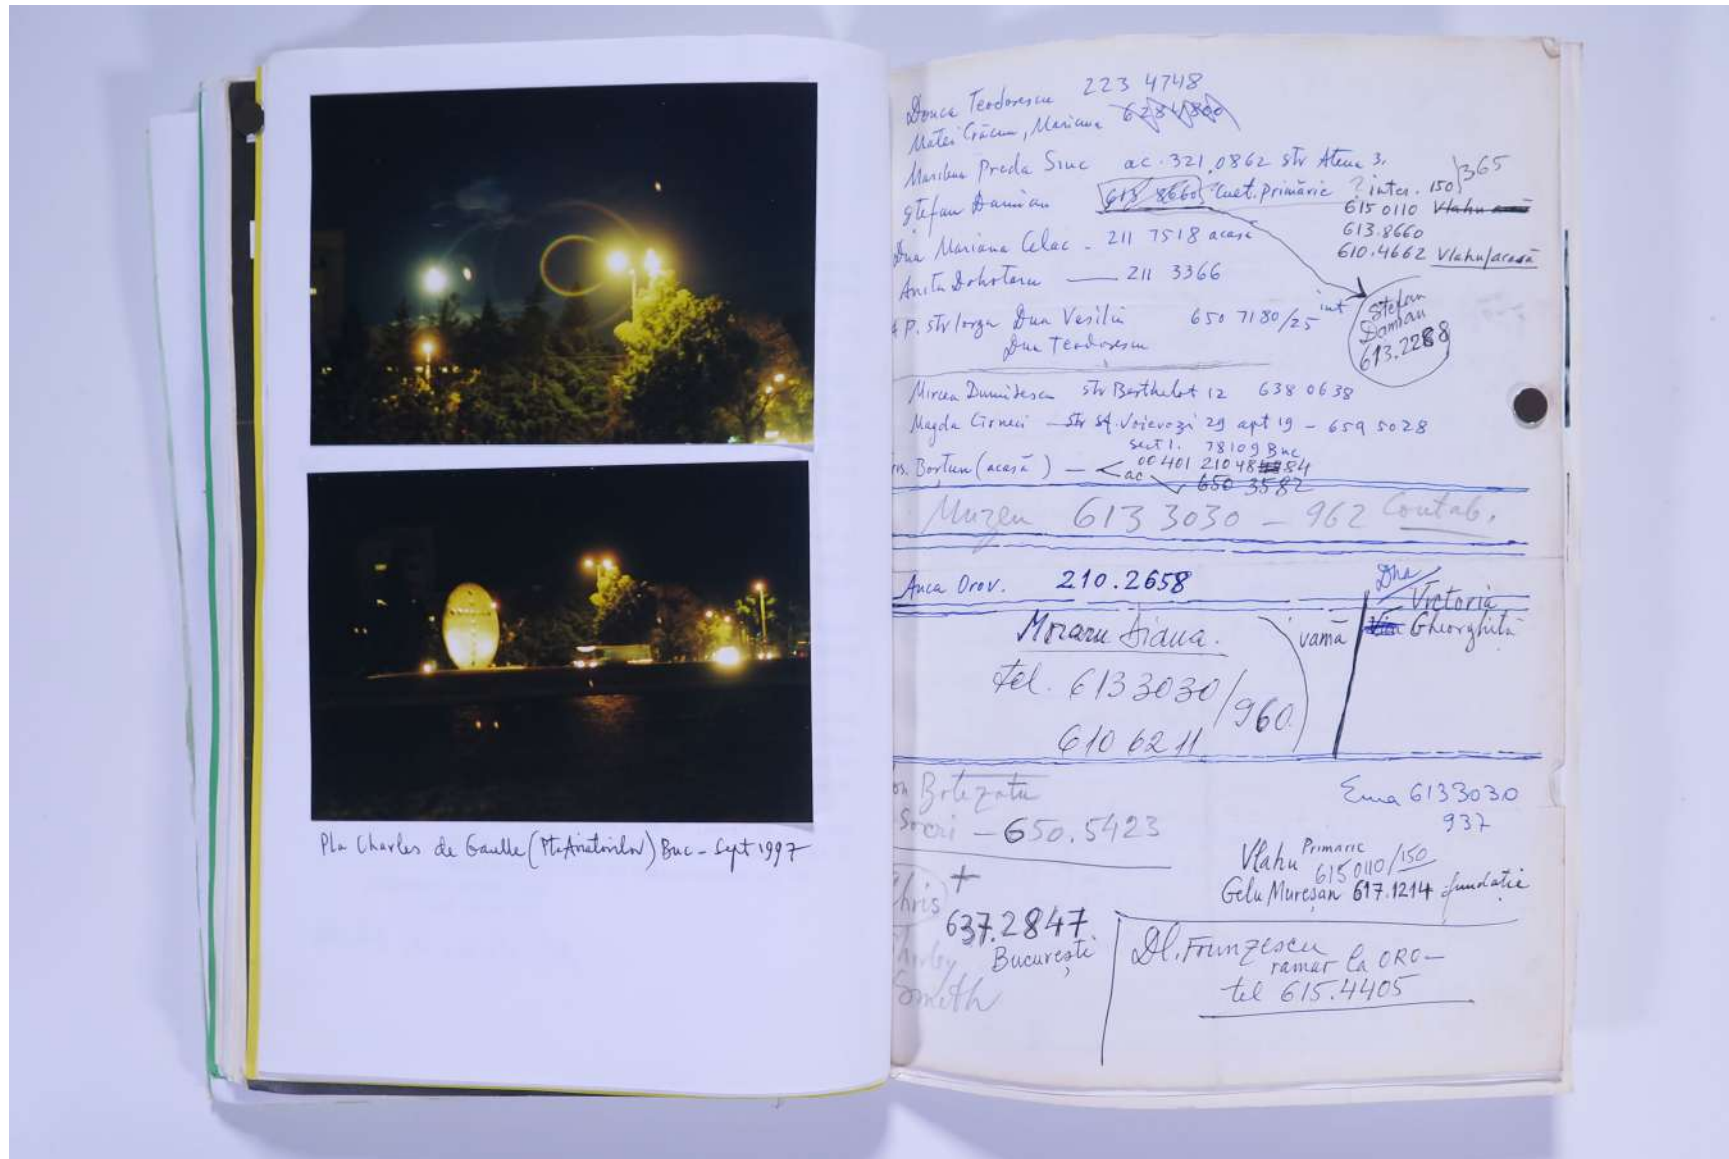 Pla Charles de Gaulle (Pta Aviatorilor) Buc - Sept 1997
Donca Teodorescu 223 4748
Matei Crăciun, Mariana
Marilena Preda Sînc ac. 321.0862 str Atena 3.
Ștefan Damian 613 8660 Cuet. Primărie ? inter. 150 / 365
615 0110 Vlahu
613.8660
610.4662 Vlahu/acasă
Dna Mariana Celac - 211 7518 acasă
Anita Dohotaru — 211 3366
Ștefan
Damian
613.2288
P. str Iorga Dna Vasiliu 650 7180/25 int
Dna Teodorescu
Mircea Dumitrescu str Berthelot 12 638 0638
Magda Cârneci — str Sf. Voievozi 29 apt 19 - 659 5028
sect 1. 78109 Buc
Boștun (acasă) — 00401 21048 84
ac 650 3582
Muzeu 613 3030 - 962 Contab.
Anca Orov. 210.2658
Dna Victoria
Gheorghiță
Moraru Diana. vamă
tel. 6133030/960
610 62 11
Ion Botezatu
Socri - 650.5423
Ema 6133030
937
Vlahu Primărie 615 0110/150
Gelu Mureșan 617.1214 fundație
Chris +
637.2847
București
Smith
Dl. Frunzescu
ramar la ORO-
tel 615.4405